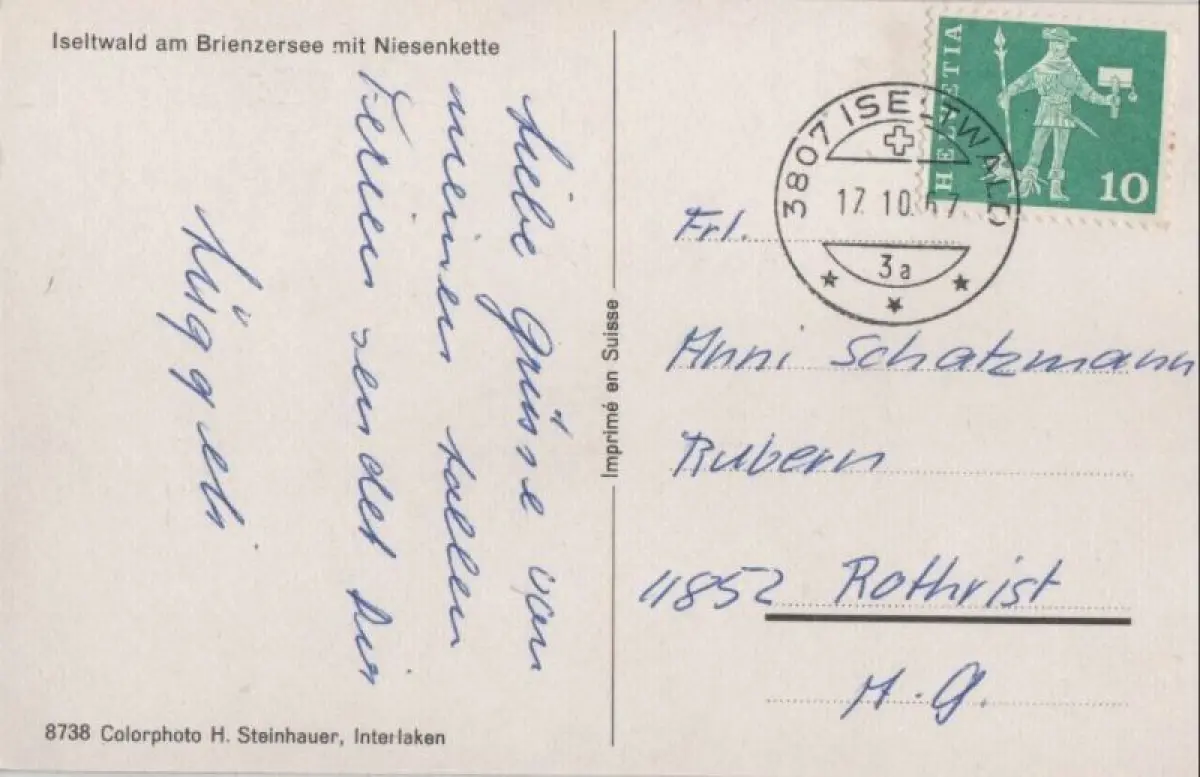 Iseltwald am Brienzersee mit Niesenkette
Liebe Grüsse von
meinen tollen
Ferien sendet Dir
Lüggeli
8738 Colorphoto H. Steinhauer, Interlaken
Imprimé en Suisse
HELVETIA
10
3807 ISELTWALD
17.10.67
3a
Frl.
Anni Schatzmann
Rubern
4852 Rothrist
A.G.